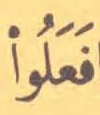 فَعَلُوا۟